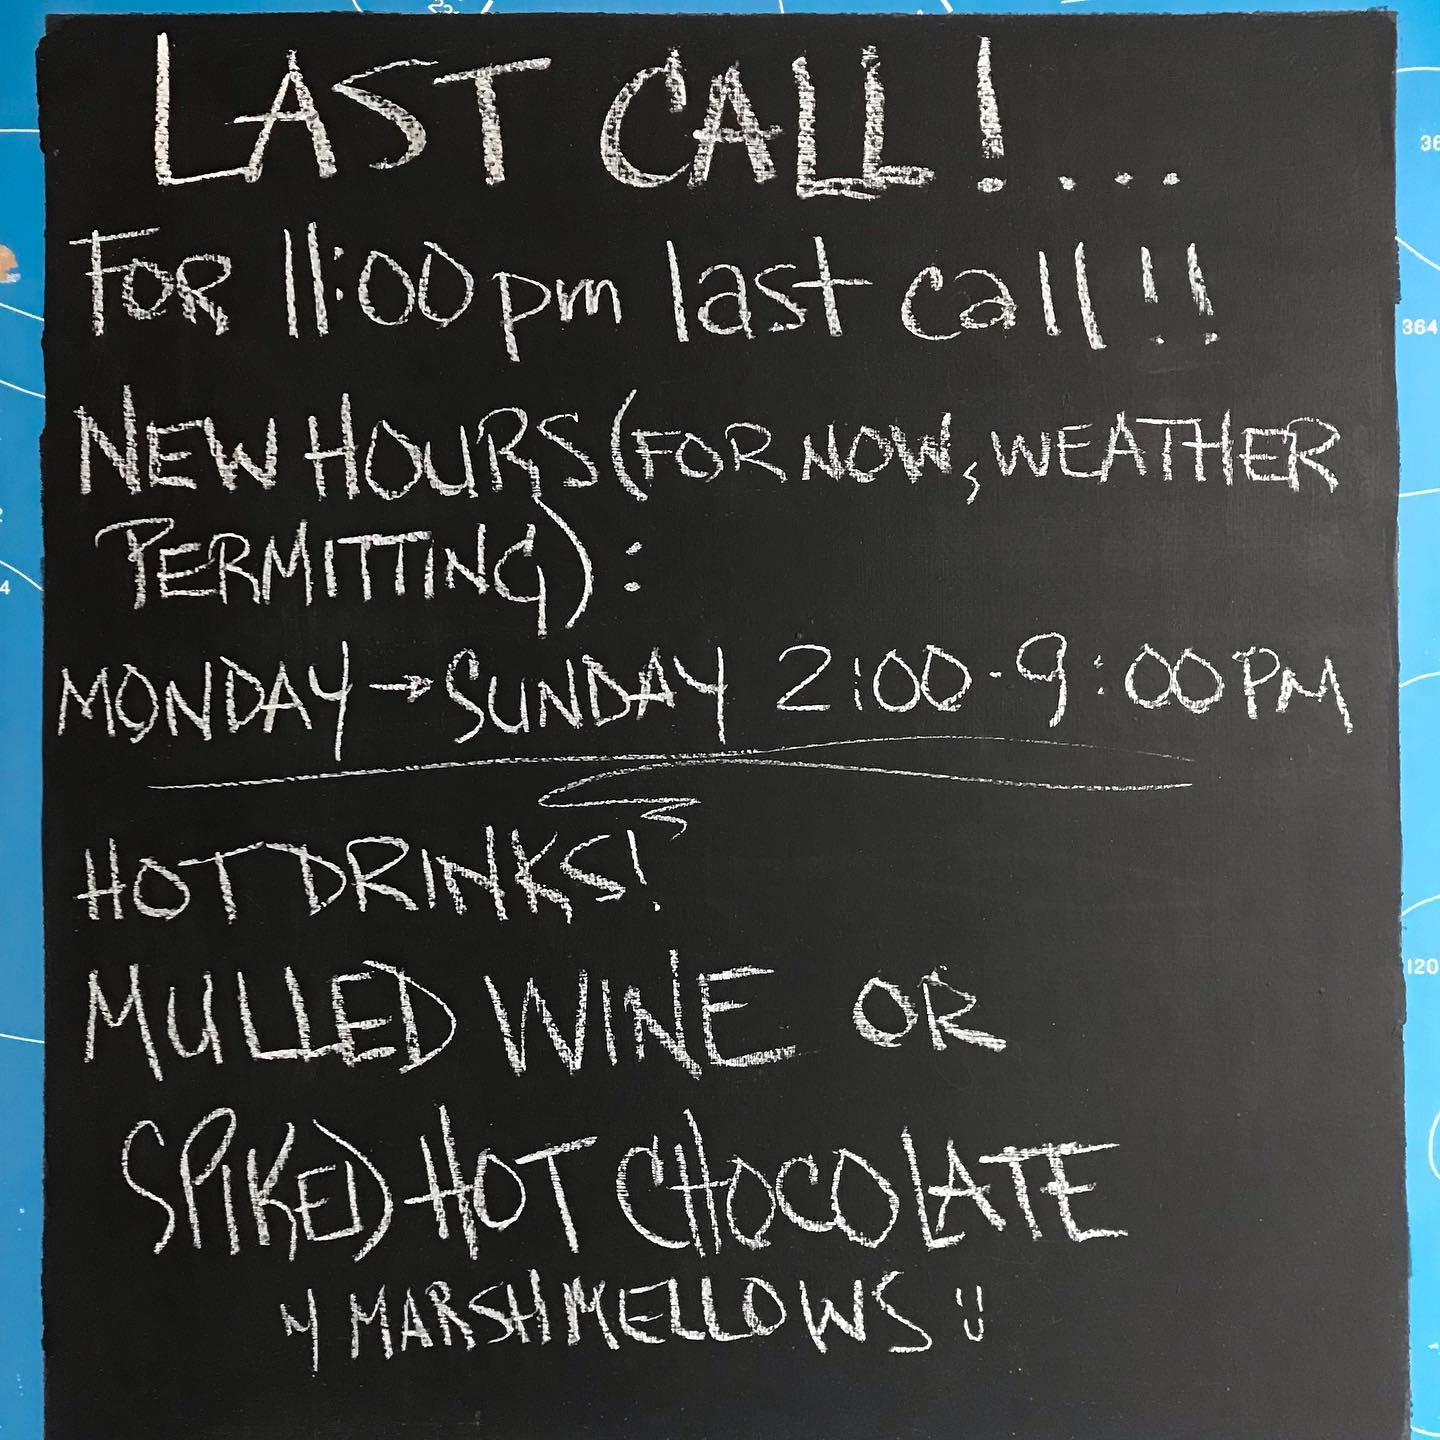 LAST CALL!...
For 11:00 pm last call!!
NEW HOURS (FOR NOW, WEATHER
PERMITTING):
MONDAY → SUNDAY 2:00-9:00 PM
HOT DRINKS!
MULLED WINE OR
SPIKED HOT CHOCOLATE
MARSHMELLOWS :)
36
364
120
4